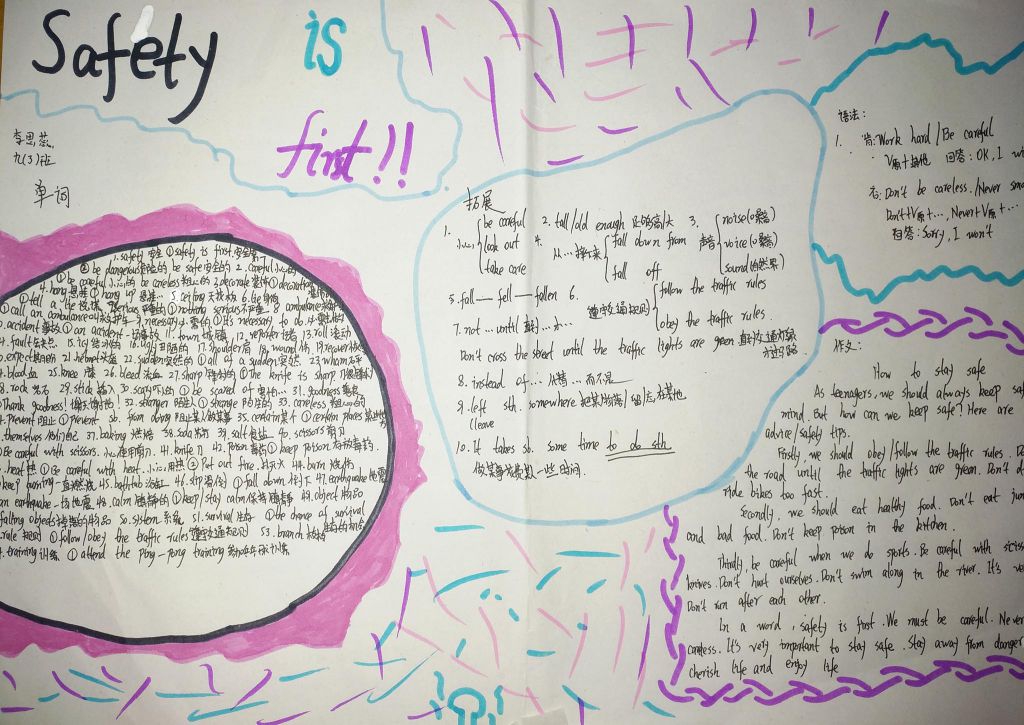 Safety is
first!!
九(3)班
单词
1. safety 安全 ① safety is first 安全第一
② be dangerous 危险的 be safe 安全的 2. careful 小心的
① be careful 小心 be careless 粗心的 3. decorate 装饰 ① decoration
4. hang 悬挂 ① hang up 悬挂... 5. ceiling 天花板 6. lie
① tell a lie 说谎 7. serious 严重的 ① nothing serious 不严重 8. ambulance
① call an ambulance 9. necessary 必要的 ① It's necessary to do
10. accident ① an accident 11. town 12. reporter 记者 13. roll 滚动
14. fault 15. icy 结冰的 16. ugly 丑陋的 17. shoulder 肩 18. wound 伤 19.
20. expect 期待 21. helmet 头盔 22. sudden 突然的 ① all of a sudden 突然 23.
24. blood 血 25. knee 膝 26. bleed 流血 27. sharp ① The knife is sharp
28. rock 岩石 29. stick 插入 30. scary 可怕的 ① be scared of 31. goodness
① Thank goodness! 谢天谢地! 32. stranger 陌生人 ① strange 陌生的 33. careless 粗心的
34. prevent 阻止 ① prevent sb. from doing 阻止某人做某事 35. certain 某个 ① certain places 某些地方
36. themselves 他们自己 37. baking 38. soda 39. salt 食盐 40. scissors 剪刀
① Be careful with scissors. 小心使用剪刀. 41. knife 刀 42. poison 毒药 ① keep poison
43. heat 热 ① Be careful with heat. 小心用热 ② Put out fire. 44. burn 烧伤
① keep burning 一直燃烧 45. bathtub 浴缸 46. slip 滑倒 ① fall down 倒下 47. earthquake 地震
① an earthquake 一场地震 48. calm 镇静的 ① keep/stay calm 保持镇静 49. object 物品
① falling objects 掉落的物品 50. system 系统 51. survival 生存 ① be chance of survival
52. rule 规则 ① follow/obey the traffic rules 遵守交通规则 53. branch
54. training 训练 ① attend the ping-pong training
拓展
1. 小心 be careful
look out
take care
2. tall/old enough 足够高/大
3. 声音 noise(噪音)
voice(嗓音)
sound(自然界)
4. 从...掉下来 fall down from
fall off
5. fall — fell — fallen
6. 遵守交通规则 follow the traffic rules
obey the traffic rules
7. not ... until 直到...才...
Don't cross the street until the traffic lights are green. 直到交通灯绿
8. instead of ... 代替...而不是...
9. left sth. somewhere 把某物落/留在某地
(leave
10. It takes sb. some time to do sth.
做某事花费某人一些时间.
语法:
1. 肯: Work hard / Be careful
V原+其他 回答: OK, I wi
否: Don't be careless. /Never smo
Don't+V原+..., Never+V原+...
回答: Sorry, I won't
作文:
How to stay safe
As teenagers, we should always keep safe
mind. But how can we keep safe? Here are
advice/safety tips.
Firstly, we should obey/follow the traffic rules. Do
the road until the traffic lights are green. Don't d
ride bikes too fast.
Secondly, we should eat healthy food. Don't eat jun
and bad food. Don't keep poison in the kitchen.
Thirdly, be careful when we do sports. Be careful with sciss
knives. Don't hurt ourselves. Don't swim along in the river. It's ve
Don't run after each other.
In a word, safety is first. We must be careful. Never
careless. It's very important to stay safe. Stay away from danger
cherish life and enjoy life